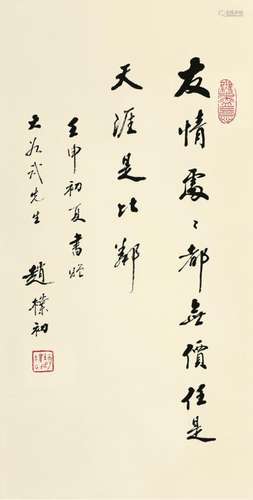 友情處々都無價任是
天涯是比鄰
壬申初夏書贈
大 武先生
趙樸初